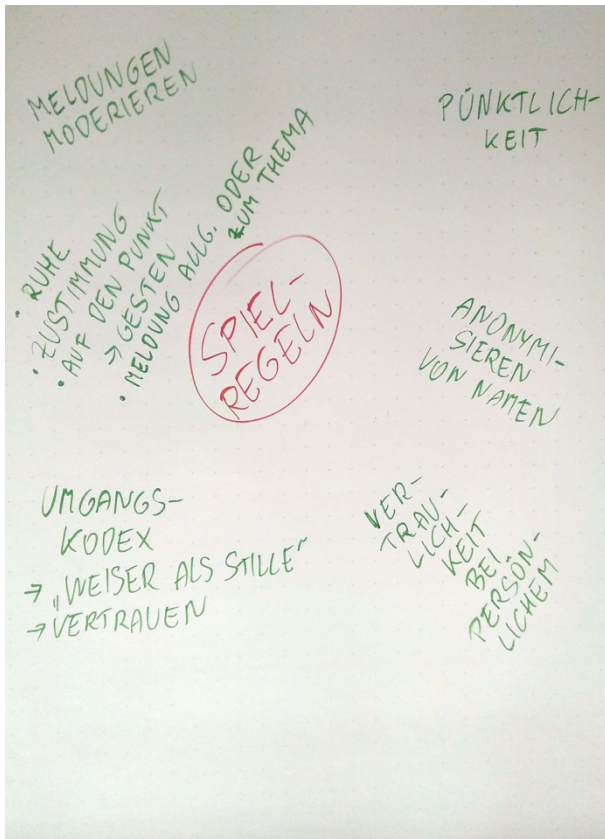 MELDUNGEN
MODERIEREN
• RUHE
• ZUSTIMMUNG
• AUF DEN PUNKT
→ GESTEN
• MELDUNG ALLG. ODER
ZUM THEMA
SPIEL-
REGELN
PÜNKTLICH-
KEIT
ANONYMI-
SIEREN
VON NAMEN
UMGANGS-
KODEX
→ „WEISER ALS STILLE"
→ VERTRAUEN
VER-
TRAU-
LICH-
KEIT
BEI
PERSÖN-
LICHEM